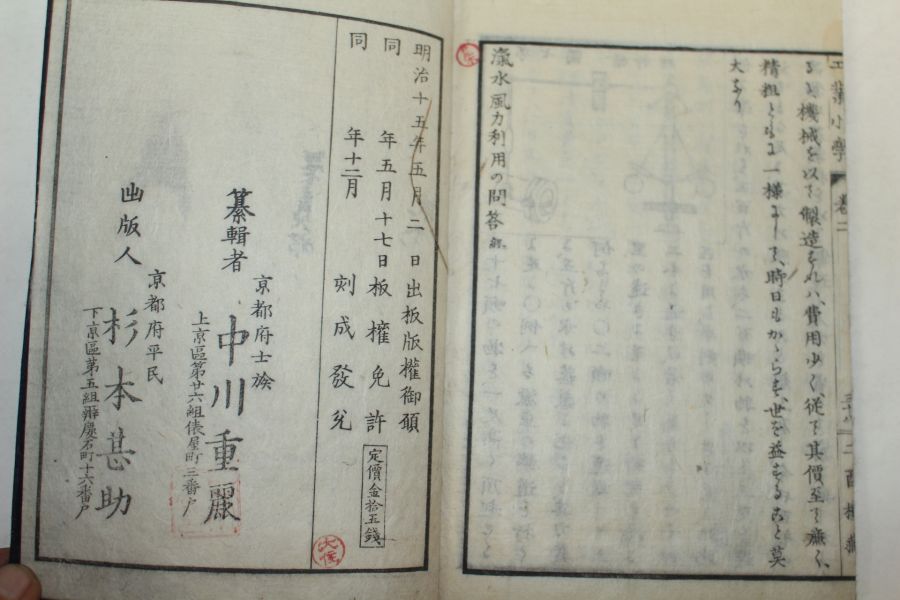 る機械を以て製造すれハ、費用少く、従て其價至て廉く、
精粗ともに一様にして、時日もかゝらす、世を益すること莫
大なり
滊水風力利用の問答 終
明治十五年五月二日出板版權御願
同年五月十七日板權免許
同年十二月刻成發兌
定價金拾五錢
京都府士族
纂輯者 中川重麗
上京區第廿六組俵屋町三番戸
京都府平民
出版人 杉本甚助
下京區第五組辨慶石町十六番戸